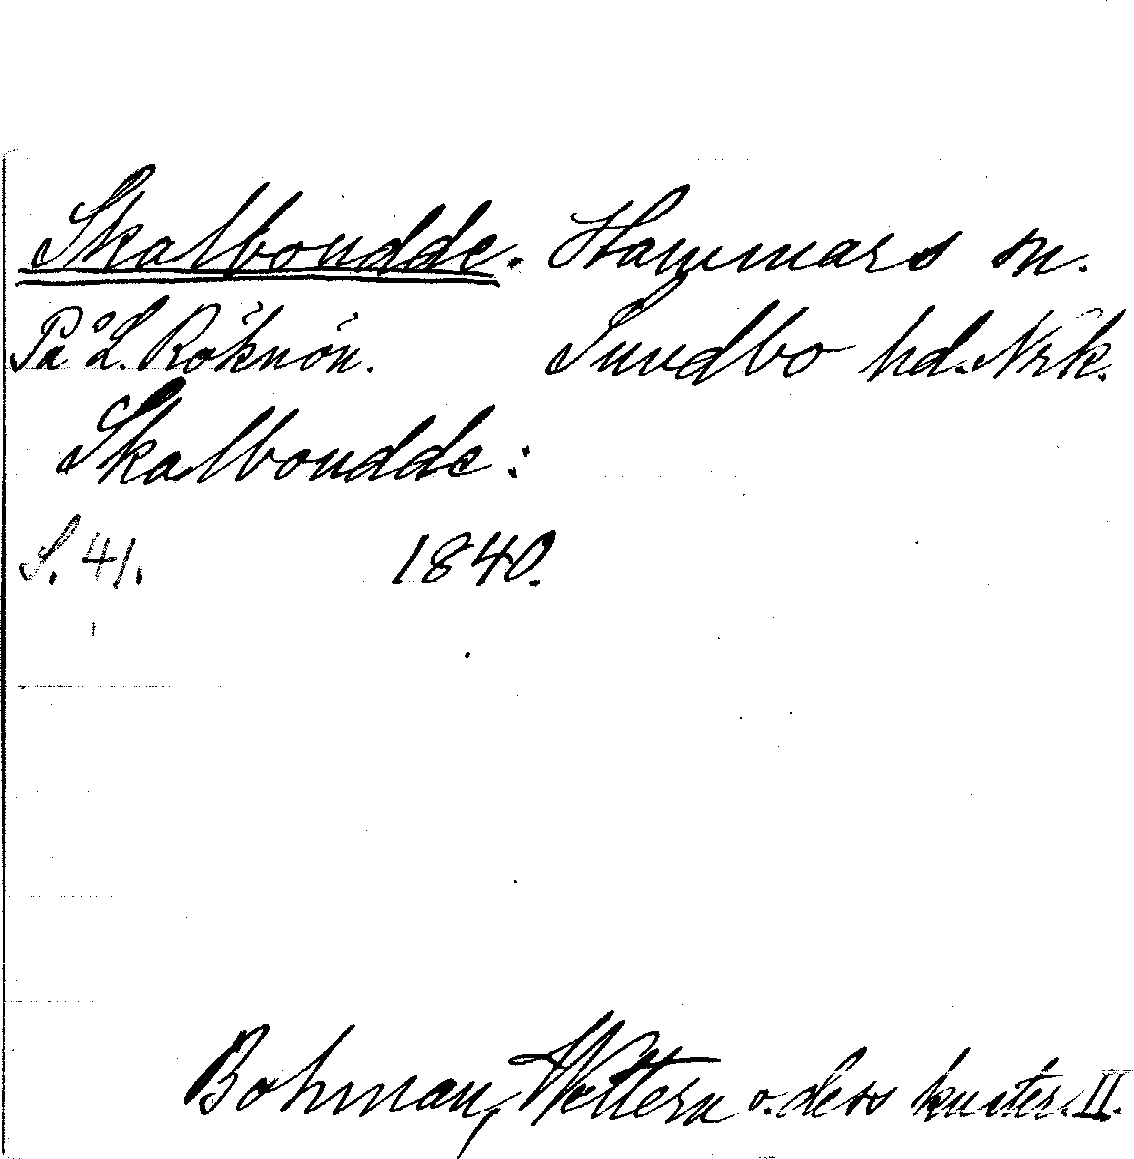 Skalboudde. Hammars sn.
På L. Röknön. Sundbo hd. Nrk.
Skalboudde:
S. 41. 1840.
Bohman, Wettern o. dess kuster. II.